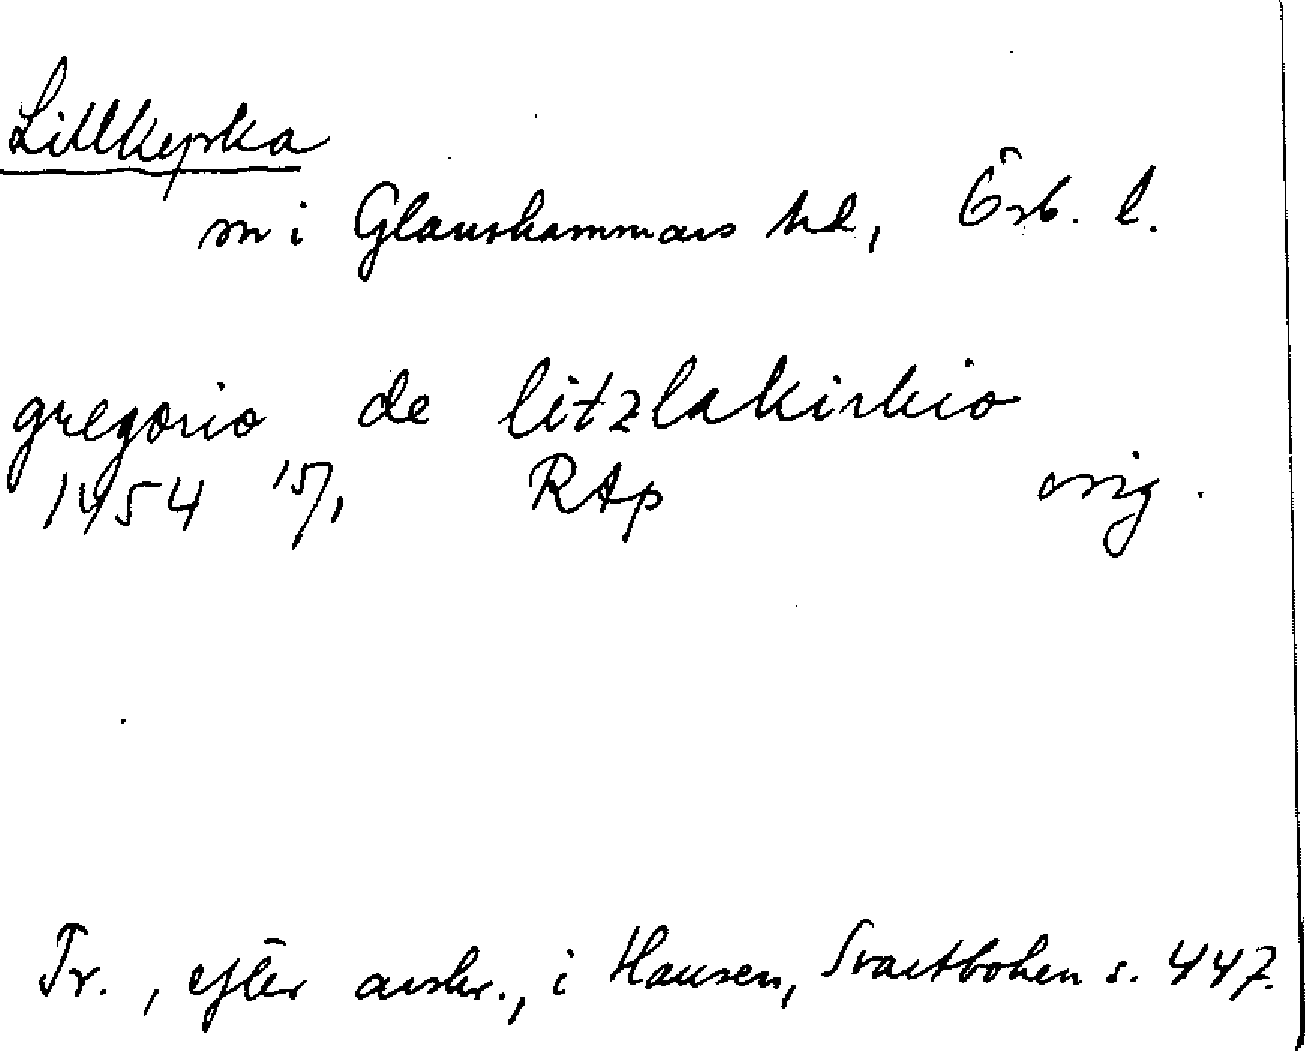 Lillkyrka
sn i Glanshammars hd, Örb. l.
gregorio de litzlakirkio
1454 15/1 RAp orig.
Tr., efter avskr., i Hausen, Svartboken s. 447.